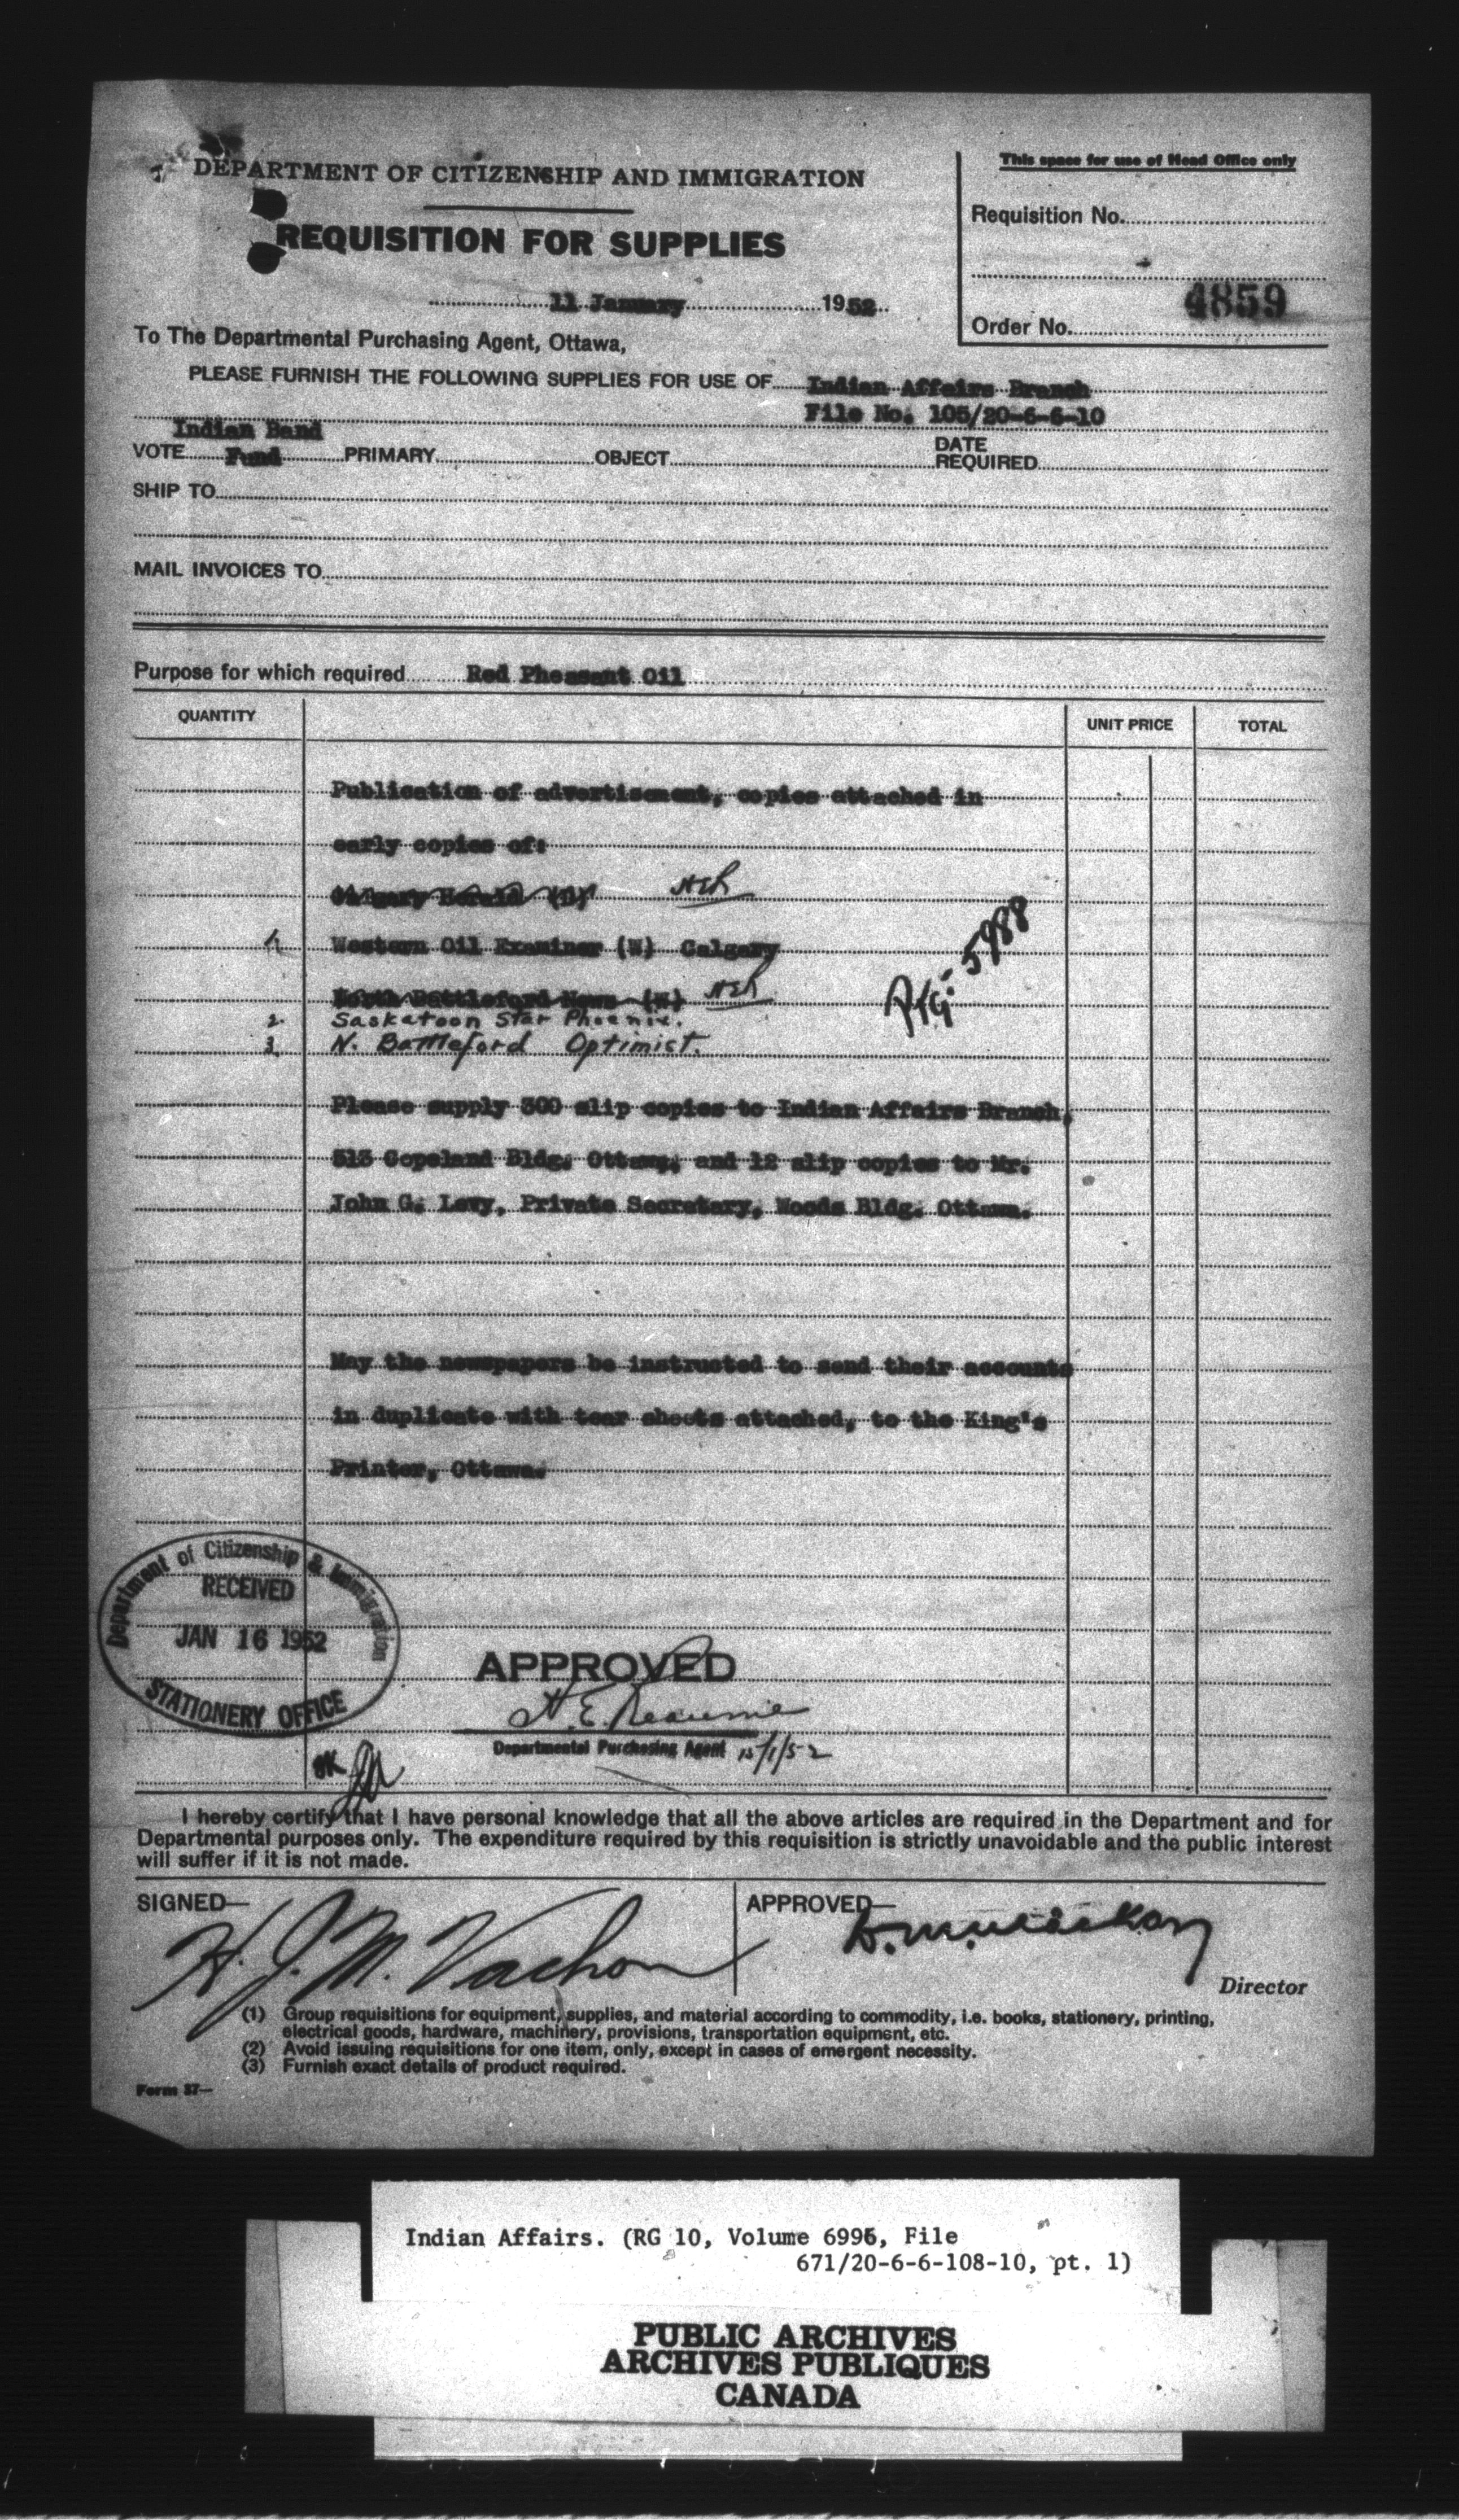 DEPARTMENT OF CITIZENSHIP AND IMMIGRATION
REQUISITION FOR SUPPLIES
11 January 1952
This space for use of Head Office only
Requisition No.
4859
Order No.
To The Departmental Purchasing Agent, Ottawa,
PLEASE FURNISH THE FOLLOWING SUPPLIES FOR USE OF Indian Affairs Branch
File No. 105/20-6-6-10
Indian Band
VOTE Fund PRIMARY OBJECT DATE REQUIRED
SHIP TO
MAIL INVOICES TO
Purpose for which required Red Pheasant Oil
QUANTITY UNIT PRICE TOTAL
Publication of advertisement, copies attached in
early copies of:
Calgary Herald (D)
Western Oil Examiner (W) Calgary
North Battleford News (W)
5988
2 Saskatoon Star Phoenix.
3 N. Battleford Optimist.
Please supply 300 slip copies to Indian Affairs Branch,
513 Copeland Bldg. Ottawa, and 12 slip copies to Mr.
John G. Levy, Private Secretary, Woods Bldg. Ottawa.
May the newspapers be instructed to send their accounts
in duplicate with tear sheets attached, to the King's
Printer, Ottawa.
Department of Citizenship & Immigration
RECEIVED
JAN 16 1952
STATIONERY OFFICE
APPROVED
H.E. Reaume
Departmental Purchasing Agent 15/1/52
OK
I hereby certify that I have personal knowledge that all the above articles are required in the Department and for
Departmental purposes only. The expenditure required by this requisition is strictly unavoidable and the public interest
will suffer if it is not made.
SIGNED— APPROVED—
H. J. M. Vachon
Director
(1) Group requisitions for equipment, supplies, and material according to commodity, i.e. books, stationery, printing,
electrical goods, hardware, machinery, provisions, transportation equipment, etc.
(2) Avoid issuing requisitions for one item, only, except in cases of emergent necessity.
(3) Furnish exact details of product required.
Form 37—
Indian Affairs. (RG 10, Volume 6996, File
671/20-6-6-108-10, pt. 1)
PUBLIC ARCHIVES
ARCHIVES PUBLIQUES
CANADA